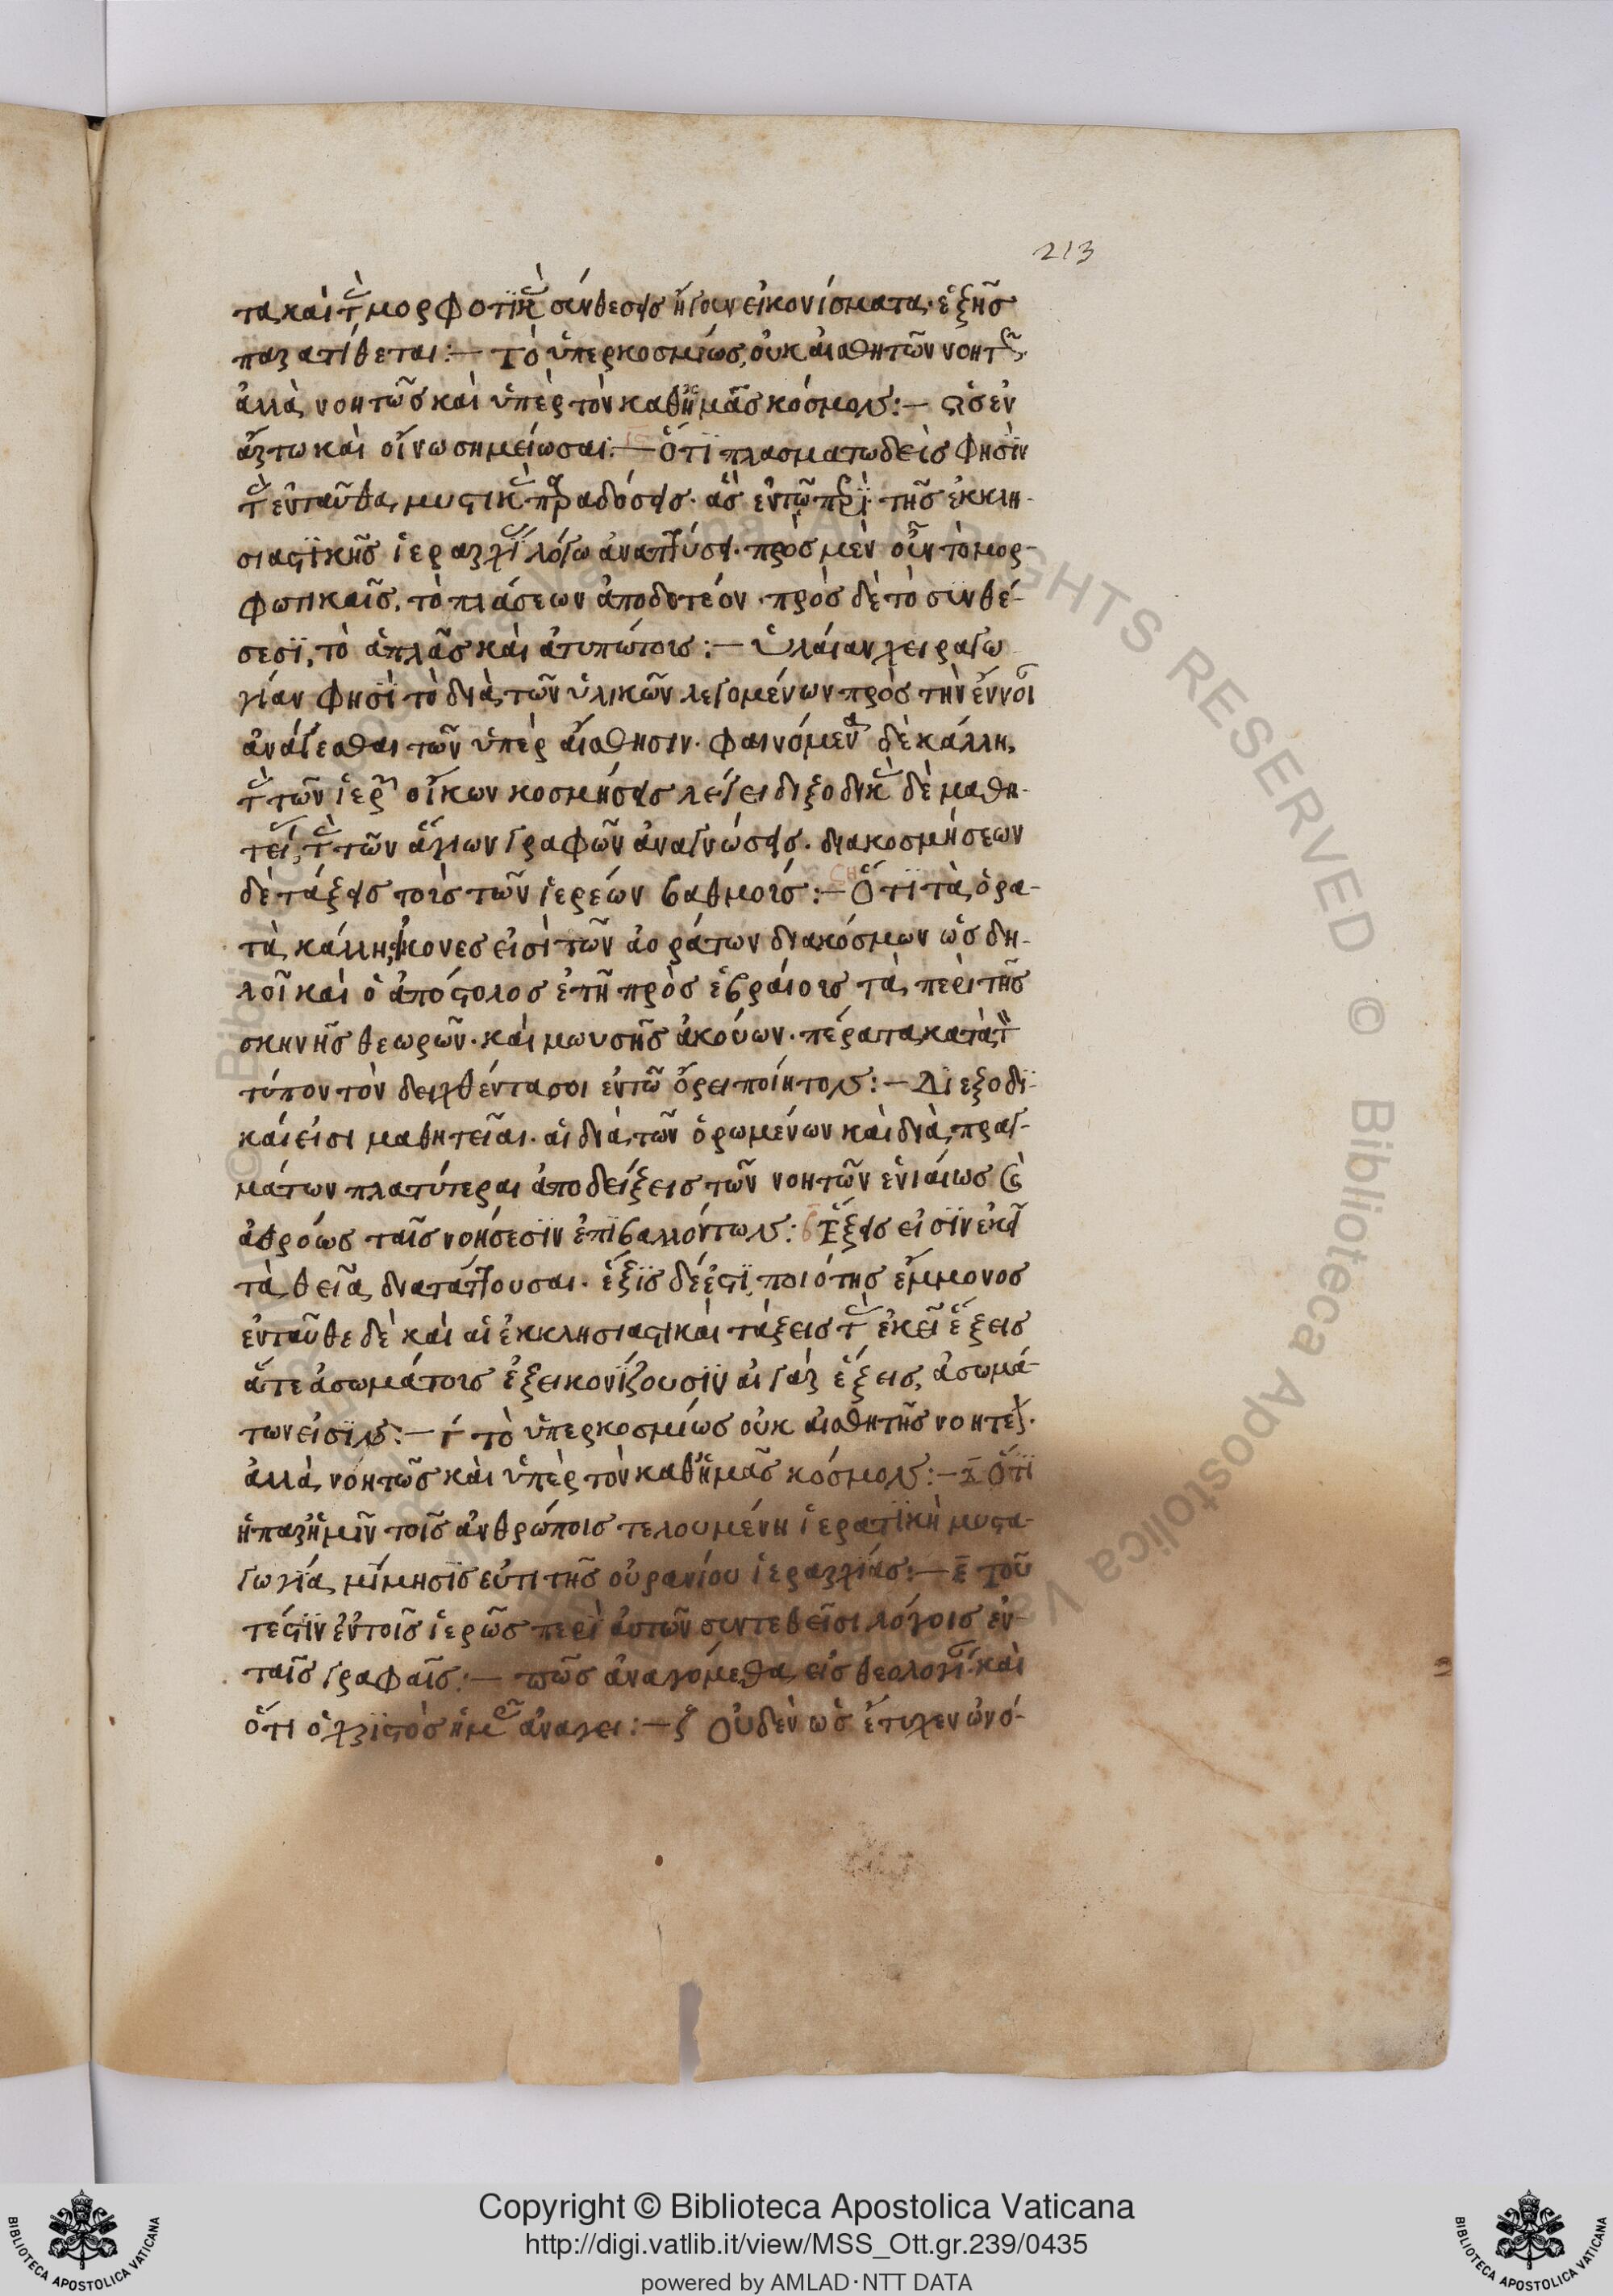 213
τα καὶ τὰς μορφοτικὰς συνθέσεις ἤγουν εἰκονίσματα. ἑξῆς
παρατίθεται:— Τὸ ὑπερκοσμίως, οὐκ αἰσθητῶν νοητῶν.
ἀλλὰ νοητῶς καὶ ὑπὲρ τὸν καθ' ἡμᾶς κόσμον:— ὡς ἐν
ἄρτω καὶ οἴνω σημείωσαι:— Ὅτι πλασματωδεῖς φησὶν
τὰς ἐνταῦθα μυστικὰς παραδόσεις. ἃς ἐν τῶ περὶ τῆς ἐκκλη-
σιαστικῆς ἱεραρχίας λόγω ἀναπτύσει. πρὸς μὲν οὖν τὸ μορ-
φωτικαῖς, τὸ πλάσεων ἀποδοτέον. πρὸς δὲ τὸ συνθέ-
σεσι, τὸ ἁπλᾶς καὶ ἀτυπώτους:— ὑλαίαν χειραγω
γίαν φησὶ τὸ διὰ τῶν ὑλικῶν λεγομένων πρὸς τὴν ἔννοιαν
ἀνάγεσθαι τῶν ὑπὲρ αἴσθησιν. φαινόμενα δὲ κάλλη,
τὰς τῶν ἱερῶν οἴκων κοσμήσεις λέγει διξοδικὰς δὲ μαθη-
τείας, τὰς τῶν ἁγίων γραφῶν ἀναγνώσεις. διακοσμήσεων
δὲ τάξεις τοὺς τῶν ἱερέων βαθμούς:— Ὅτι τὰ ὁρα-
τὰ κάλλη, εἰκόνες εἰσὶ τῶν ἀοράτων διακόσμων ὡς δη-
λοῖ καὶ ὁ ἀπόστολος ἐν τῆ πρὸς ἑβραίους τὰ περὶ τῆς
σκηνῆς θεωρῶν. καὶ μωυσῆς ἀκούων. πέρατα κατὰ τὸν
τύπον τὸν δειχθέντα σοι ἐν τῶ ὄρει ποίησον:— Διεξοδι-
καί εἰσι μαθητεῖαι. αἱ διὰ τῶν ὁρωμένων καὶ διὰ πραγ-
μάτων πλατύτεραι ἀποδείξεις τῶν νοητῶν ἑνιαίως καὶ
ἀθρόως ταῖς νοήσεσιν ἐπιβαλλόντων: β Ἕξεις εἰσὶν ἐκεῖ
τὰ θεῖα διατάττουσαι. ἕξις δέ ἐστι ποιότης ἔμμονος
ἐνταῦθε δὲ καὶ αἱ ἐκκλησιαστικαὶ τάξεις τὰς ἐκεῖ ἕξεις
ἅτε ἀσωμάτους ἐξεικονίζουσιν αἱ γὰρ ἕξεις, ἀσωμά-
των εἰσίν:— γ τὸ ὑπερκοσμίως οὐκ αἰσθητῆς νοητέον.
ἀλλὰ νοητῶς καὶ ὑπὲρ τὸν καθ' ἡμᾶς κόσμον:— δ Ὅτι
ἡ παρ' ἡμῖν τοῖς ἀνθρώποις τελουμένη ἱερατικὴ μυστα-
γωγία μίμησίς ἐστι τῆς οὐρανίου ἱεραρχίας:— ε Τοῦ
τέστιν ἐν τοῖς ἱερῶς περὶ αὐτῶν συντεθεῖσι λόγοις ἐν
ταῖς γραφαῖς:— πῶς ἀναγόμεθα εἰς θεολογίαν καὶ
ὅτι ὁ χριστὸς ἡμᾶς ἀνάγει:— ζ Οὐδὲν ὡς ἔτυχεν ὠνό-
Copyright © Biblioteca Apostolica Vaticana
http://digi.vatlib.it/view/MSS_Ott.gr.239/0435
powered by AMLAD·NTT DATA
BIBLIOTECA APOSTOLICA VATICANA
BIBLIOTECA APOSTOLICA VATICANA